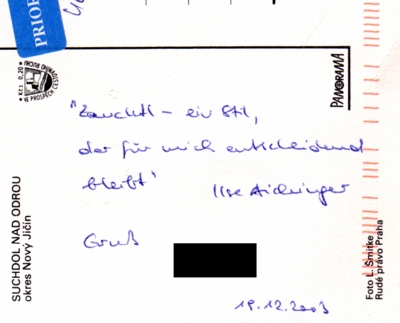 PRIOR
Kčs 0,20
VE PROSPĚCH
PANORAMA
SUCHDOL NAD ODROU
okres Nový Jičín
"Zauchtl – ein Stil,
der für mich entscheidend
bleibt"
Ilse Aichinger
Gruß
19.12.2003
Foto L. Smitke
Rudé právo Praha